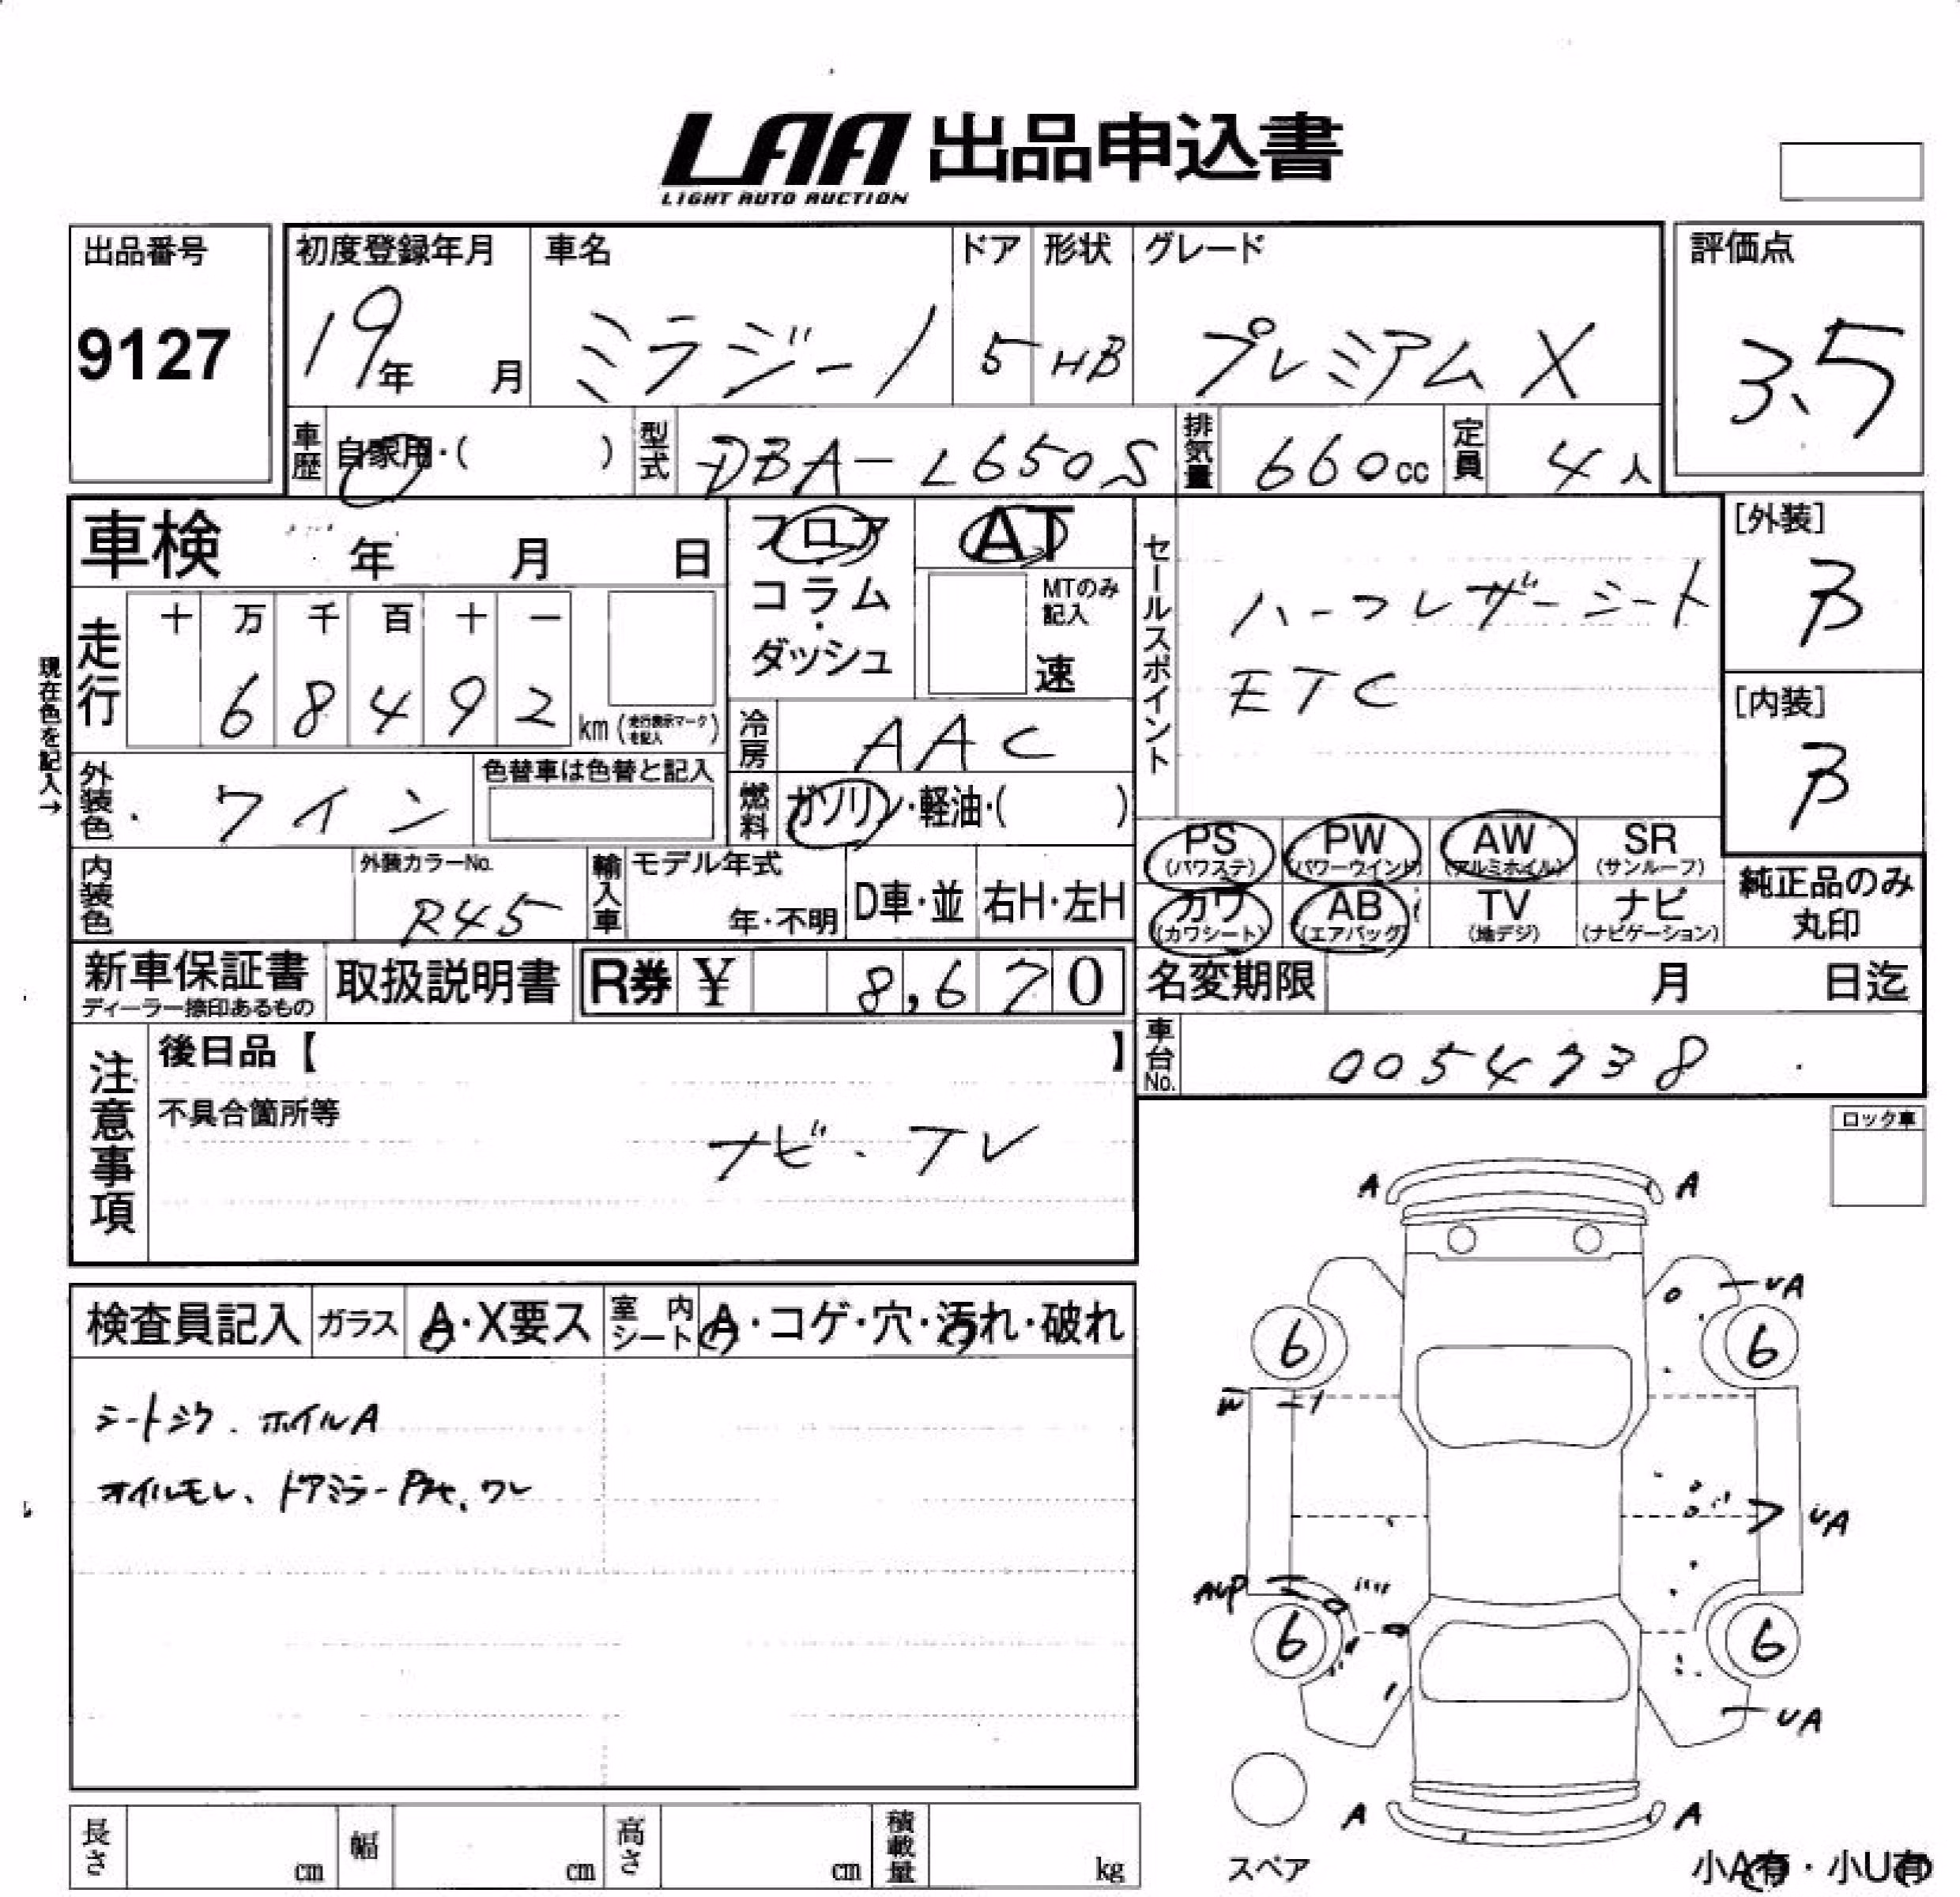 LAA 出品申込書
LIGHT AUTO AUCTION
出品番号
9127
初度登録年月
19年 月
車名
ミラジーノ
ドア
5
形状
HB
グレード
プレミアム X
評価点
3.5
車歴
自家用・( )
型式
DBA-L650S
排気量
660cc
定員
4人
車検 年 月 日
フロア
コラム
・
ダッシュ
AT
MTのみ
記入
速
セールスポイント
ハーフレザーシート
ETC
[外装]
B
[内装]
B
現在色を記入→
走行
十 万 千 百 十 一
6 8 4 9 2
km (走行表示マークを記入)
冷房
AAC
外装色
ワイン
色替車は色替と記入
燃料
ガソリン・軽油・( )
PS
(パワステ)
PW
(パワーウインド)
AW
(アルミホイル)
SR
(サンルーフ)
カワ
(カワシート)
AB
(エアバッグ)
TV
(地デジ)
ナビ
(ナビゲーション)
純正品のみ
丸印
内装色
外装カラーNo.
R45
輸入車
モデル年式
年・不明
D車・並
右H・左H
新車保証書
ディーラー捺印あるもの
取扱説明書
R券 ¥ 8,670
名変期限 月 日迄
車台No.
0054738
注意事項
後日品【 】
不具合箇所等
ナビ、TV
ロック車
検査員記入
ガラス
A・X要ス
室内シート
A・コゲ・穴・汚れ・破れ
シートジク、ホイルA
オイルモレ、ドアミラー
ワレ
A
A
UA
6
6
W
UA
AUP
6
6
UA
A
A
スペア
小A有・小U有
長さ cm
幅 cm
高さ cm
積載量 kg